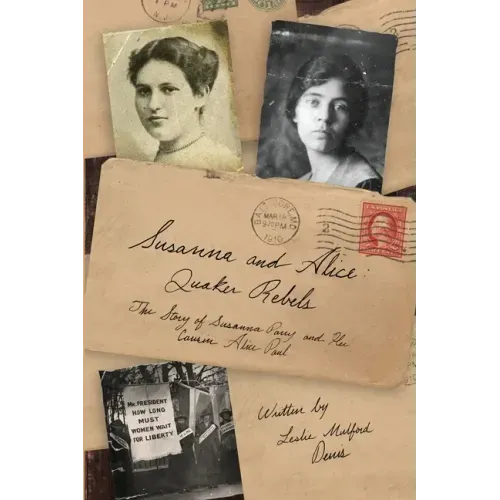 PM
BALTIMORE, MD.
MAR 16
1916
2
Susanna and Alice:
Quaker Rebels
The Story of Susanna Parry and Her
Cousin Alice Paul
MR. PRESIDENT
HOW LONG
MUST
WOMEN WAIT
FOR LIBERTY
Written by
Leslie Mulford
Denis